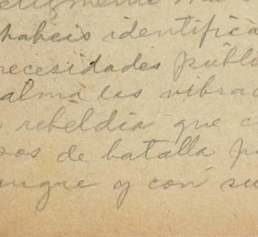 habeis identifica
necesidades públ
alma las vibrac
rebeldia que c
pos de batalla p
angre y con su